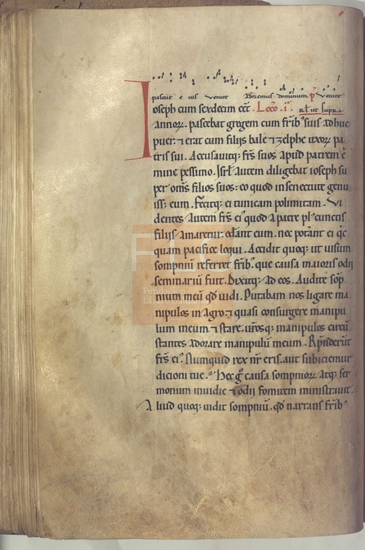 pascue e ius Venite Adoremus dominum p̄ Venite
Ioseph cum sexdecim eēt Lec̄o. i. R̄ ut supra
annoꝝ. pascebat gregem cum fr̄ibꝰ suis adhuc
puer. ⁊ erat cum filijs bale ⁊ zelphe uxoꝝ pa
tris sui. Accusauitqꝫ fr̄s suos apud patrem c̄
mine pessimo. Isr̄l autem diligebat ioseph su
per om̄s filios suos. eo quod in senectute genu
iss& eum. Fecitqꝫ ei tunicam polimitam. Vi
dentes autem fr̄s eiꝰ quod a patre pl̄ cunctis
filiis amaretur. oderant eum. nec poterant ei qc̄
quam pacifice loqui. Accidit quoqꝫ ut uisum
sompnium referret fr̄ibꝰ. que causa maioris odii
seminarium fuit. Dixitqꝫ ad eos. Audite som̄
nium meum qd̄ uidi. Putabam nos ligare ma
nipulos in agro. ⁊ quasi consurgere manipu
lum meum ⁊ stare. uir̄osqꝫ manipulos circū
stantes adorare manipulum meum. Rn̄derunt
fr̄s eiꝰ. Numquid rex nr̄ eris. aut subiciemur
dicioni tue. Hec g̊ causa sompnioꝝ atqꝫ ser
monum inuidie ⁊ odii fomitem ministrauit.
Aliud quoqꝫ uidit sompnium. qd̄ narrans fr̄ibꝰ